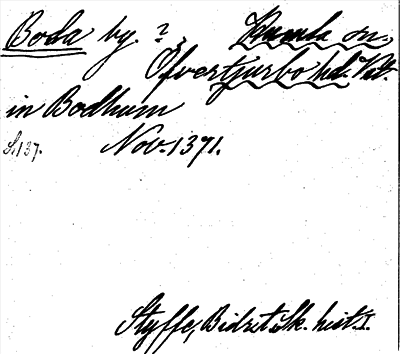 Boda by. ? Kumla sn.,
Öfvertjurbo hd. Vstl.
in Bodhum
S. 137. Nov. 1371.
Styffe, Bidr. t. Sk. hist. I.